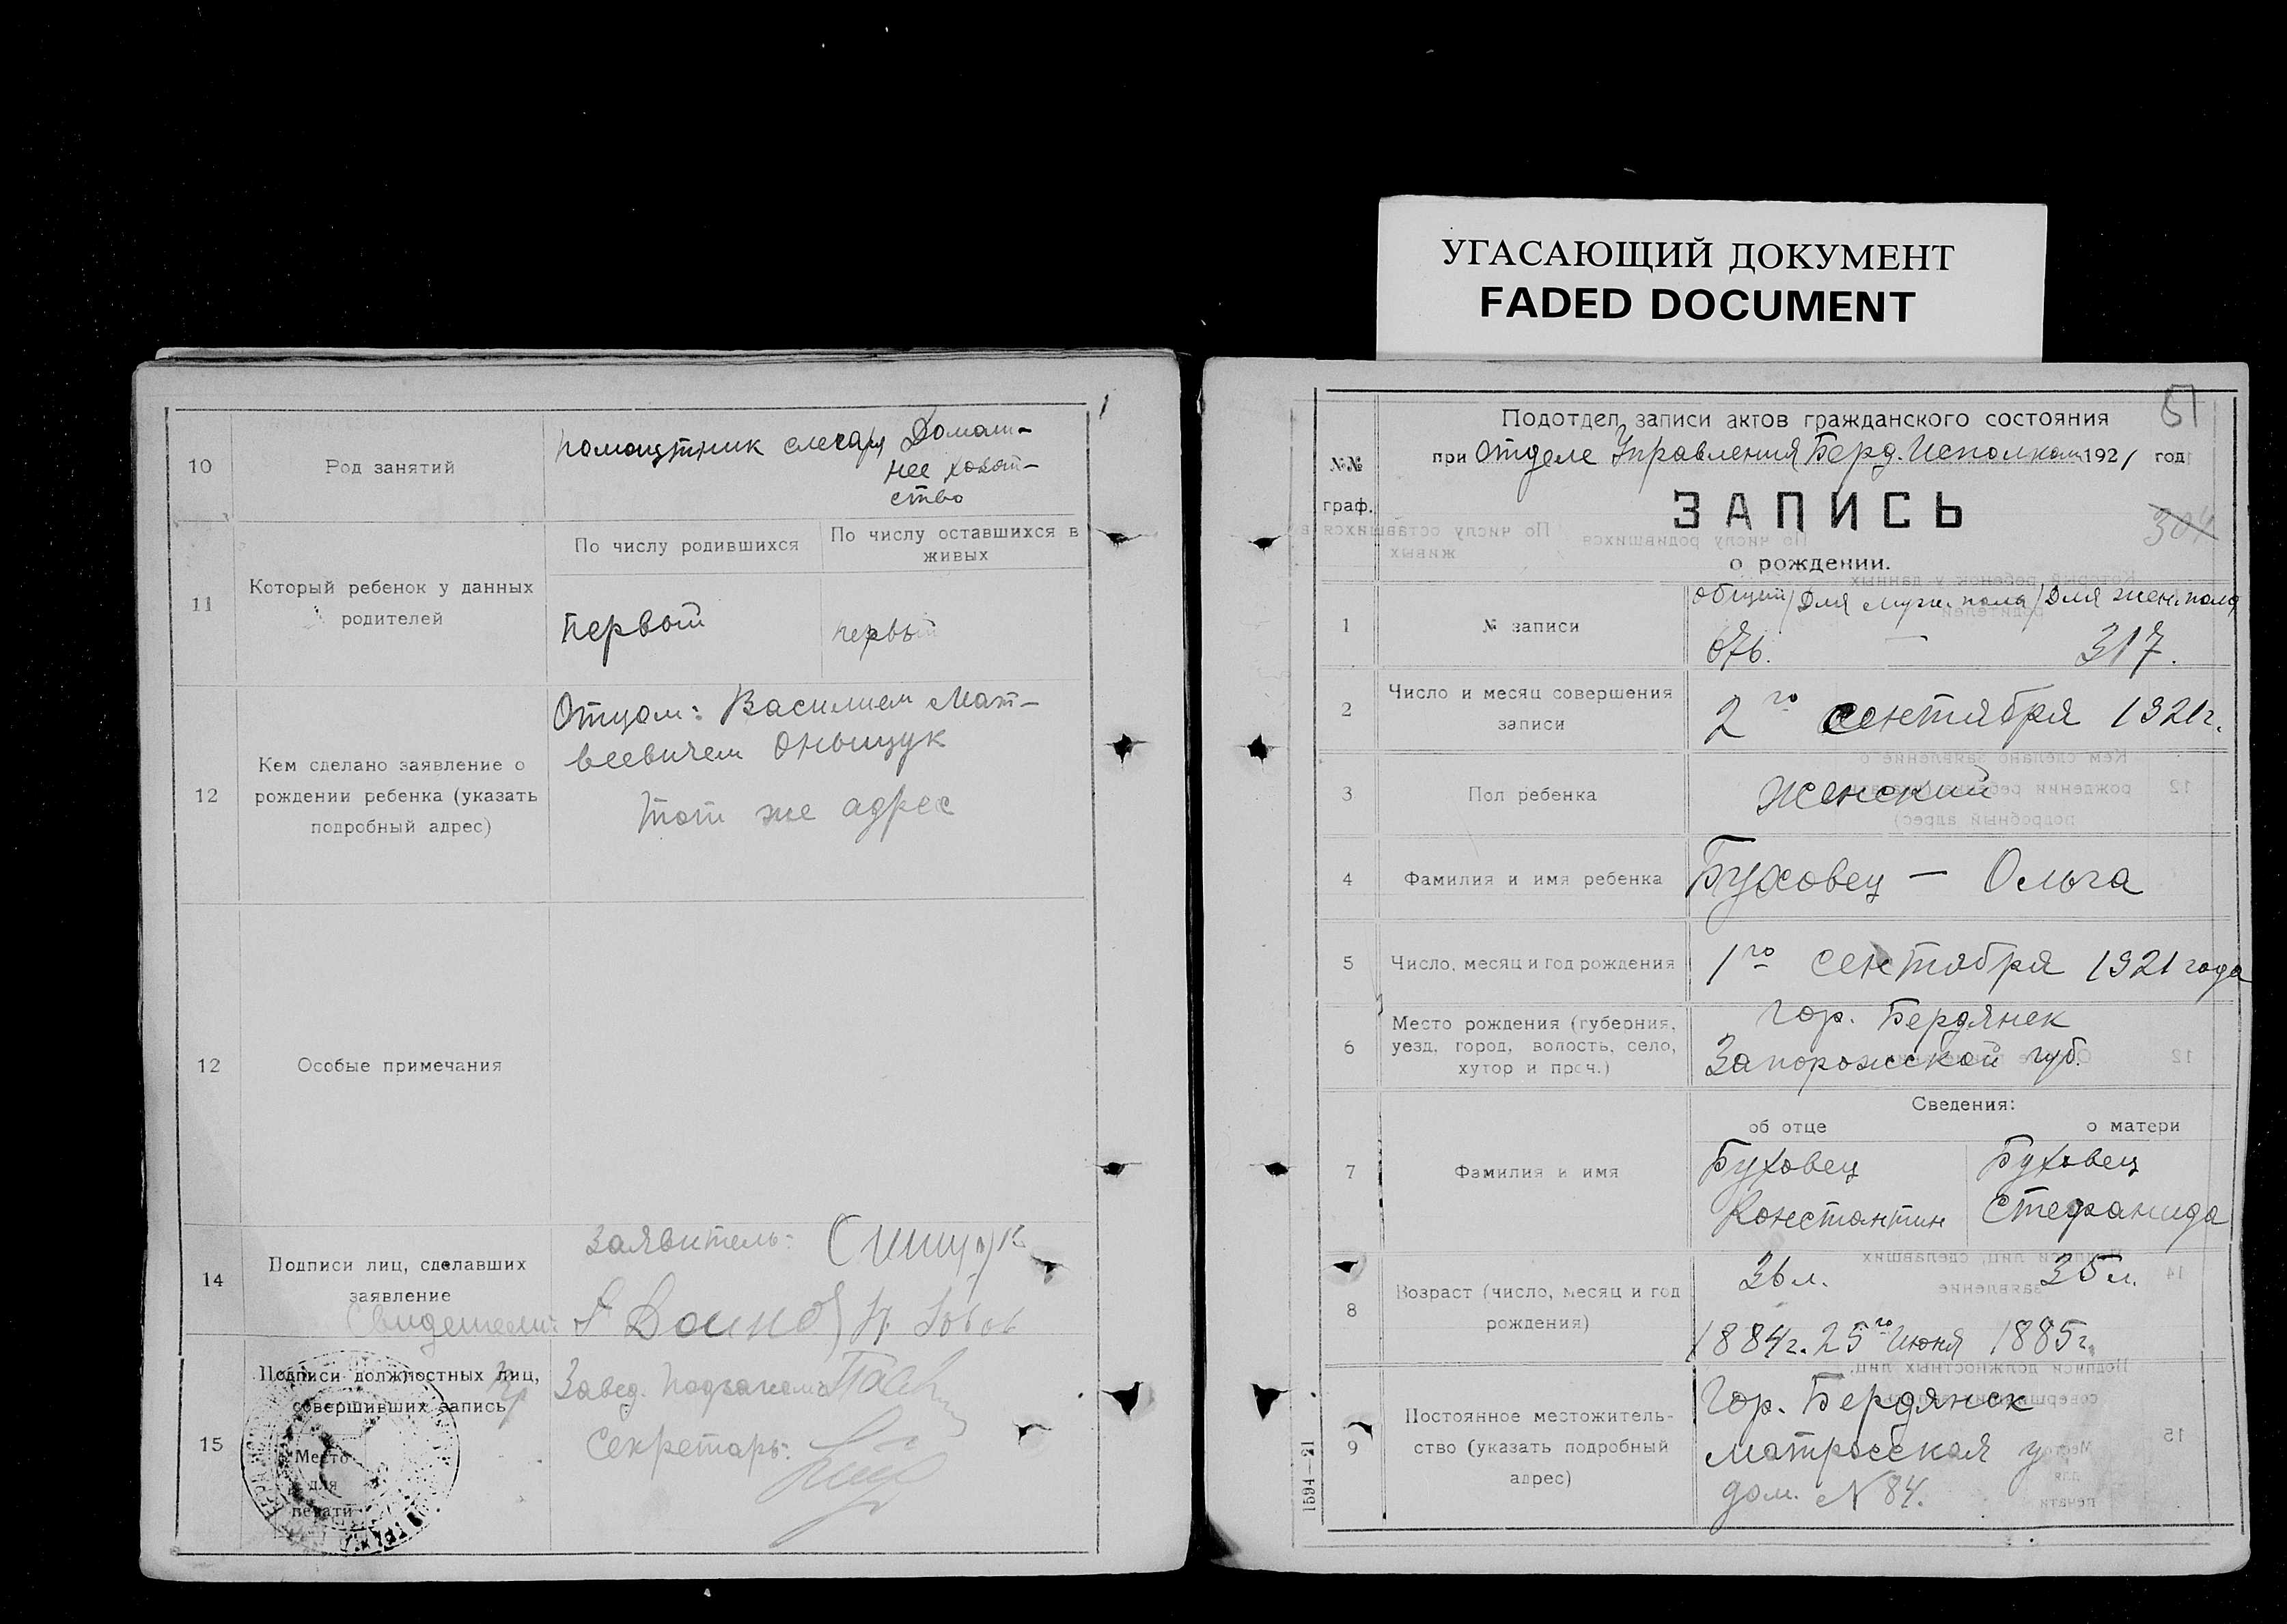 УГАСАЮЩИЙ ДОКУМЕНТ
FADED DOCUMENT
10
Род занятий
помощтник слесаря
Домаш-
нее хозяй-
ство
11
Который ребенок у данных
родителей
По числу родившихся
По числу оставшихся в
живых
первый
первый
12
Кем сделано заявление о
рождении ребенка (указать
подробный адрес)
Отцом: Василием Мат-
веевичем Онищук
тот же адрес
12
Особые примечания
14
Подписи лиц, сделавших
заявление
заявитель:
Свидетели:
15
Подписи должностных лиц,
совершивших запись
Место
для
печати
Завед. Подзагсом
Секретарь:
51
№№
граф.
Подотдел записи актов гражданского состояния
при Отделе Управления Берд. Исполком 1921 год
ЗАПИСЬ
304
о рождении.
1
№ записи
общий / Для муж. пола / Для жен. пола
676. — 317.
2
Число и месяц совершения
записи
2го сентября 1921г.
3
Пол ребенка
Женский
4
Фамилия и имя ребенка
Буховец — Ольга
5
Число, месяц и год рождения
1го сентября 1921 года
6
Место рождения (губерния,
уезд, город, волость, село,
хутор и проч.)
гор. Бердянск
Запорожской губ.
Сведения:
об отце
о матери
7
Фамилия и имя
Буховец
Константин
Буховец
Стефанида
8
Возраст (число, месяц и год
рождения)
36 л.
1884г. 25го Июня
35 л.
1885г.
9
Постоянное местожитель-
ство (указать подробный
адрес)
Гор. Бердянск
матросская у
дом. N 84.
1594—21